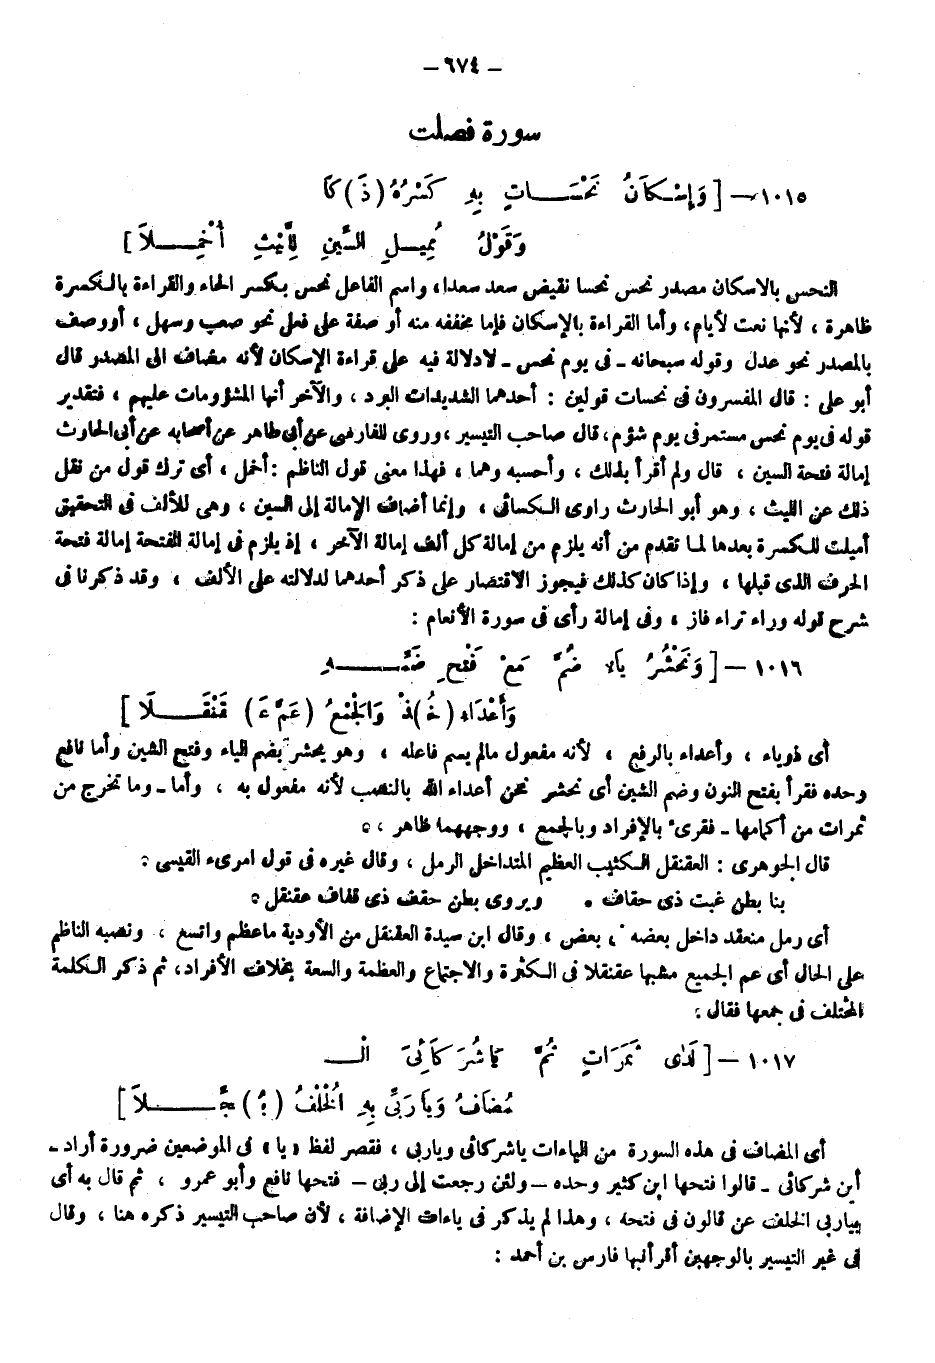 – ٦٧٤ –
سورة فصلت
١٠١٥ – [ وَإِسْكَانُ نَحْسَاتٍ بِهِ كَسْرُهُ (ذَ)كَا
وَقَوْلُ مُمِيلِ السِّينِ لِلَّيْثِ أُخْمِلَا ]
النحس بالاسكان مصدر نحس نحسا نقيض سعد سعدا، واسم الفاعل نحس بكسر الحاء والقراءة بالكسرة
ظاهرة ، لأنها نعت لأيام، وأما القراءة بالإسكان فإما مخففه منه أو صفة على فعل نحو صعب وسهل ، أووصف
بالمصدر نحو عدل وقوله سبحانه ـ فى يوم نحس ـ لادلالة فيه على قراءة الإسكان لأنه مضاف الى المصدر قال
أبو على : قال المفسرون فى نحسات قولين : أحدهما الشديدات البرد ، والآخر أنها المشؤومات عليهم ، فتقدير
قوله فى يوم نحس مستمرفى يوم شؤم، قال صاحب التيسير ،وروى للفارسى عن أبى طاهر عن أصحابه عن أبى الحارث
إمالة فتحة السين ، قال ولم أقرأ بذلك ، وأحسبه وهما ، فهذا معنى قول الناظم :أخمل ، أى ترك قول من نقل
ذلك عن الليث ، وهو أبو الحارث راوى الكسائى ، وإنما أضاف الإمالة إلى السين ، وهى للألف فى التحقيق
أميلت للكسرة بعدها لما تقدم من أنه يلزم من إمالة كل ألف إمالة الآخر ، إذ يلزم فى إمالة الفتحة إمالة فتحة
الحرف الذى قبلها ، وإذا كان كذلك فيجوز الاقتصار على ذكر أحدهما لدلالته على الألف ، وقد ذكرنا فى
شرح قوله وراء تراء فاز ، وفى إمالة رأى فى سورة الأنعام :
١٠١٦ – [ وَنَحْشُرُ يَاءٌ ضُمَّ مَعْ فَتْحِ ضَمِّهِ
وَأَعْدَاءُ (خُ)ذْ وَالجَمْعُ (عَمَّ عَ) قَنْقَلَا ]
أى ذوياء ، وأعداء بالرفع ، لأنه مفعول مالم يسم فاعله ، وهو يحشر بضم الياء وفتح الشين وأما نافع
وحده فقرأ بفتح النون وضم الشين أى نحشر نحن أعداء الله بالنصب لأنه مفعول به ، وأما ـ وما تخرج من
ثمرات من أكمامها ـ فقرىء بالإفراد وبالجمع ، ووجههما ظاهر ،
قال الجوهرى : العقنقل الكثيب العظيم المتداخل الرمل ، وقال غيره فى قول امرىء القيسى :
بنا بطن خبت ذى حقاف * ويروى بطن حقف ذى قفاف عقنقل *
أى رمل منعقد داخل بعضه فى بعض ، وقال ابن سيدة العقنقل من الأودية ماعظم واتسع ، ونصبه الناظم
على الحال أى عم الجميع مشبها عقنقلا فى الكثرة والاجتماع والعظمة والسعة بخلاف الأفراد، ثم ذكر الكلمة
المختلف فى جمعها فقال :
١٠١٧ – [ لَدَى ثَمَرَاتٍ ثُمَّ يَا شُرَكَائِيَ الْـ
مُضَافُ وَيَا رَبِّى بِهِ الخُلْفُ (بُ)جِّلَا ]
أى المضاف فى هذه السورة من الياءات ياشركائى وياربى ، فقصر لفظ «يا» فى الموضعين ضرورة أراد ـ
أين شركائى ـ قالوا فتحها ابن كثير وحده – ولئن رجعت إلى ربى – فتحها نافع وأبو عمرو ، ثم قال به أى
بياربى الخلف عن قالون فى فتحه ، وهذا لم يذكر فى ياءات الإضافة ، لأن صاحب التيسير ذكره هنا ، وقال
فى غير التيسير بالوجهين أقرأنيها فارس بن أحمد :